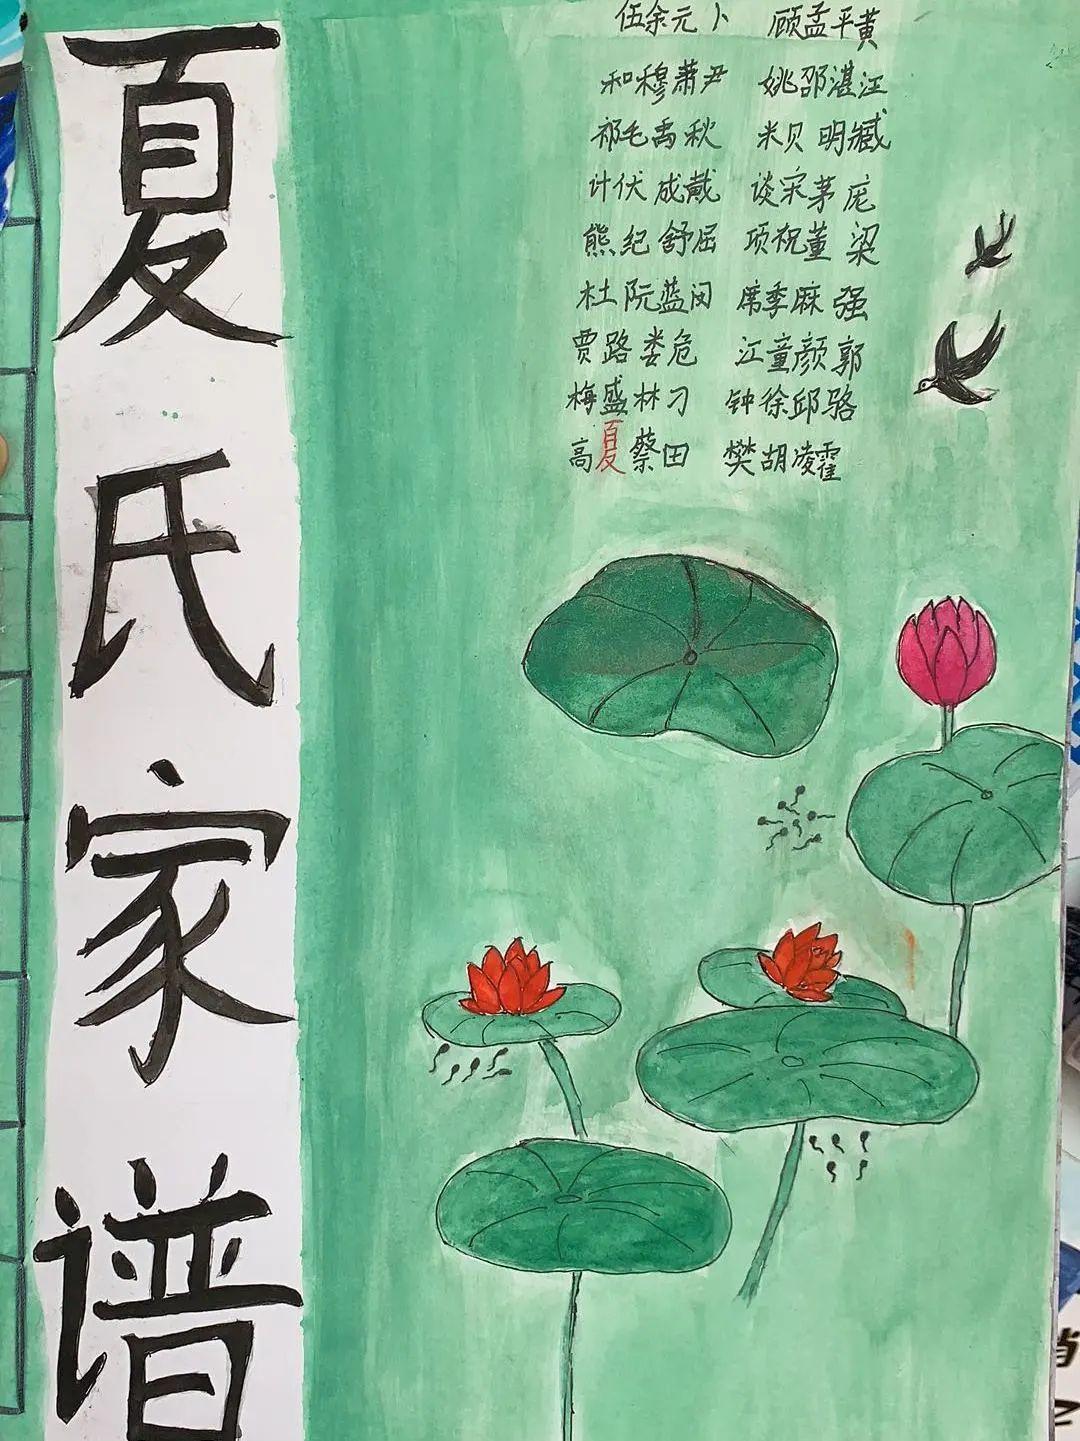 夏氏家谱
伍余元卜 顾孟平黄
和穆萧尹 姚邵湛江
祁毛禹秋 米贝明臧
计伏成戴 谈宋茅庞
熊纪舒屈 项祝董梁
杜阮蓝闵 席季麻强
贾路娄危 江童颜郭
梅盛林刁 钟徐邱骆
高夏蔡田 樊胡凌霍